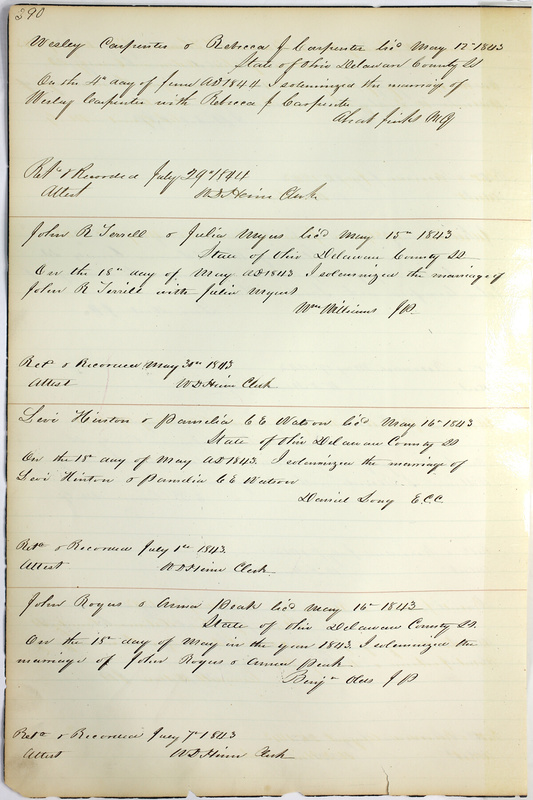 390
Wesley Carpenter & Rebecca J Carpenter licd May 12th 1843
State of Ohio Delaware County Ss
On the 4th day of June AD 1844 I solemnized the marriage of
Wesley Carpenter with Rebecca J Carpenter
Jinks MG
Retd & Recorded July 29th 1844
Attest W D Heim Clerk
John R Terrill & Julia Myers licd May 15th 1843
State of Ohio Delaware County Ss
On the 18th day of May AD 1843 I solemnized the marriage of
John R Terrill with Julia Myers
Wm Williams JP
Retd & Recorded May 30th 1843
Attest W D Heim Clerk
Levi Hinton & Pamelia C E Watson licd May 16th 1843
State of Ohio Delaware County Ss
On the 18th day of May AD 1843. I solemnized the marriage of
Levi Hinton & Pamelia C E Watson
Daniel Long E.C.C.
Retd & Recorded July 1st 1843.
Attest W D Heim Clerk
John Rogers & Anna Peak licd May 16th 1843
State of Ohio Delaware County Ss
On the 18th day of May in the year 1843. I solemnized the
marriage of John Rogers & Anna Peak
Benjn Olds JP
Retd & Recorded July 7th 1843
Attest W D Heim Clerk